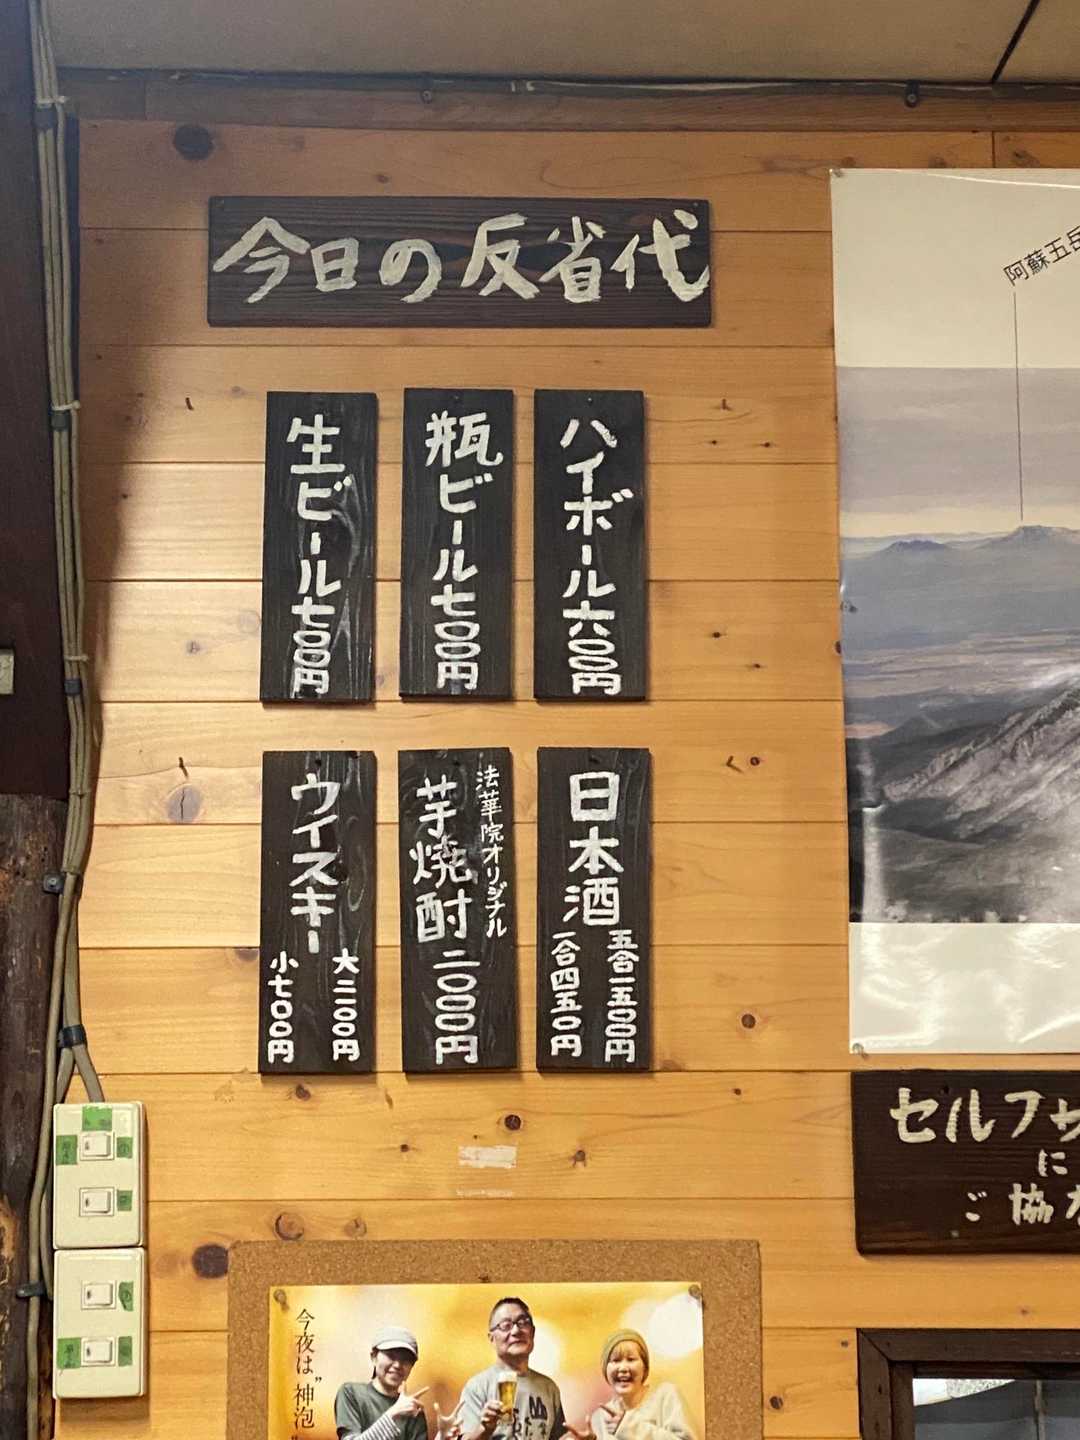 今日の反省代
ハイボール六〇〇円
瓶ビール七〇〇円
生ビール七〇〇円
日本酒
五合一五〇〇円
一合四五〇円
法華院オリジナル
芋焼酎二〇〇〇円
ウイスキー
大二二〇〇円
小七〇〇円
阿蘇五岳
セルフサ
に
ご協力
今夜は"神泡